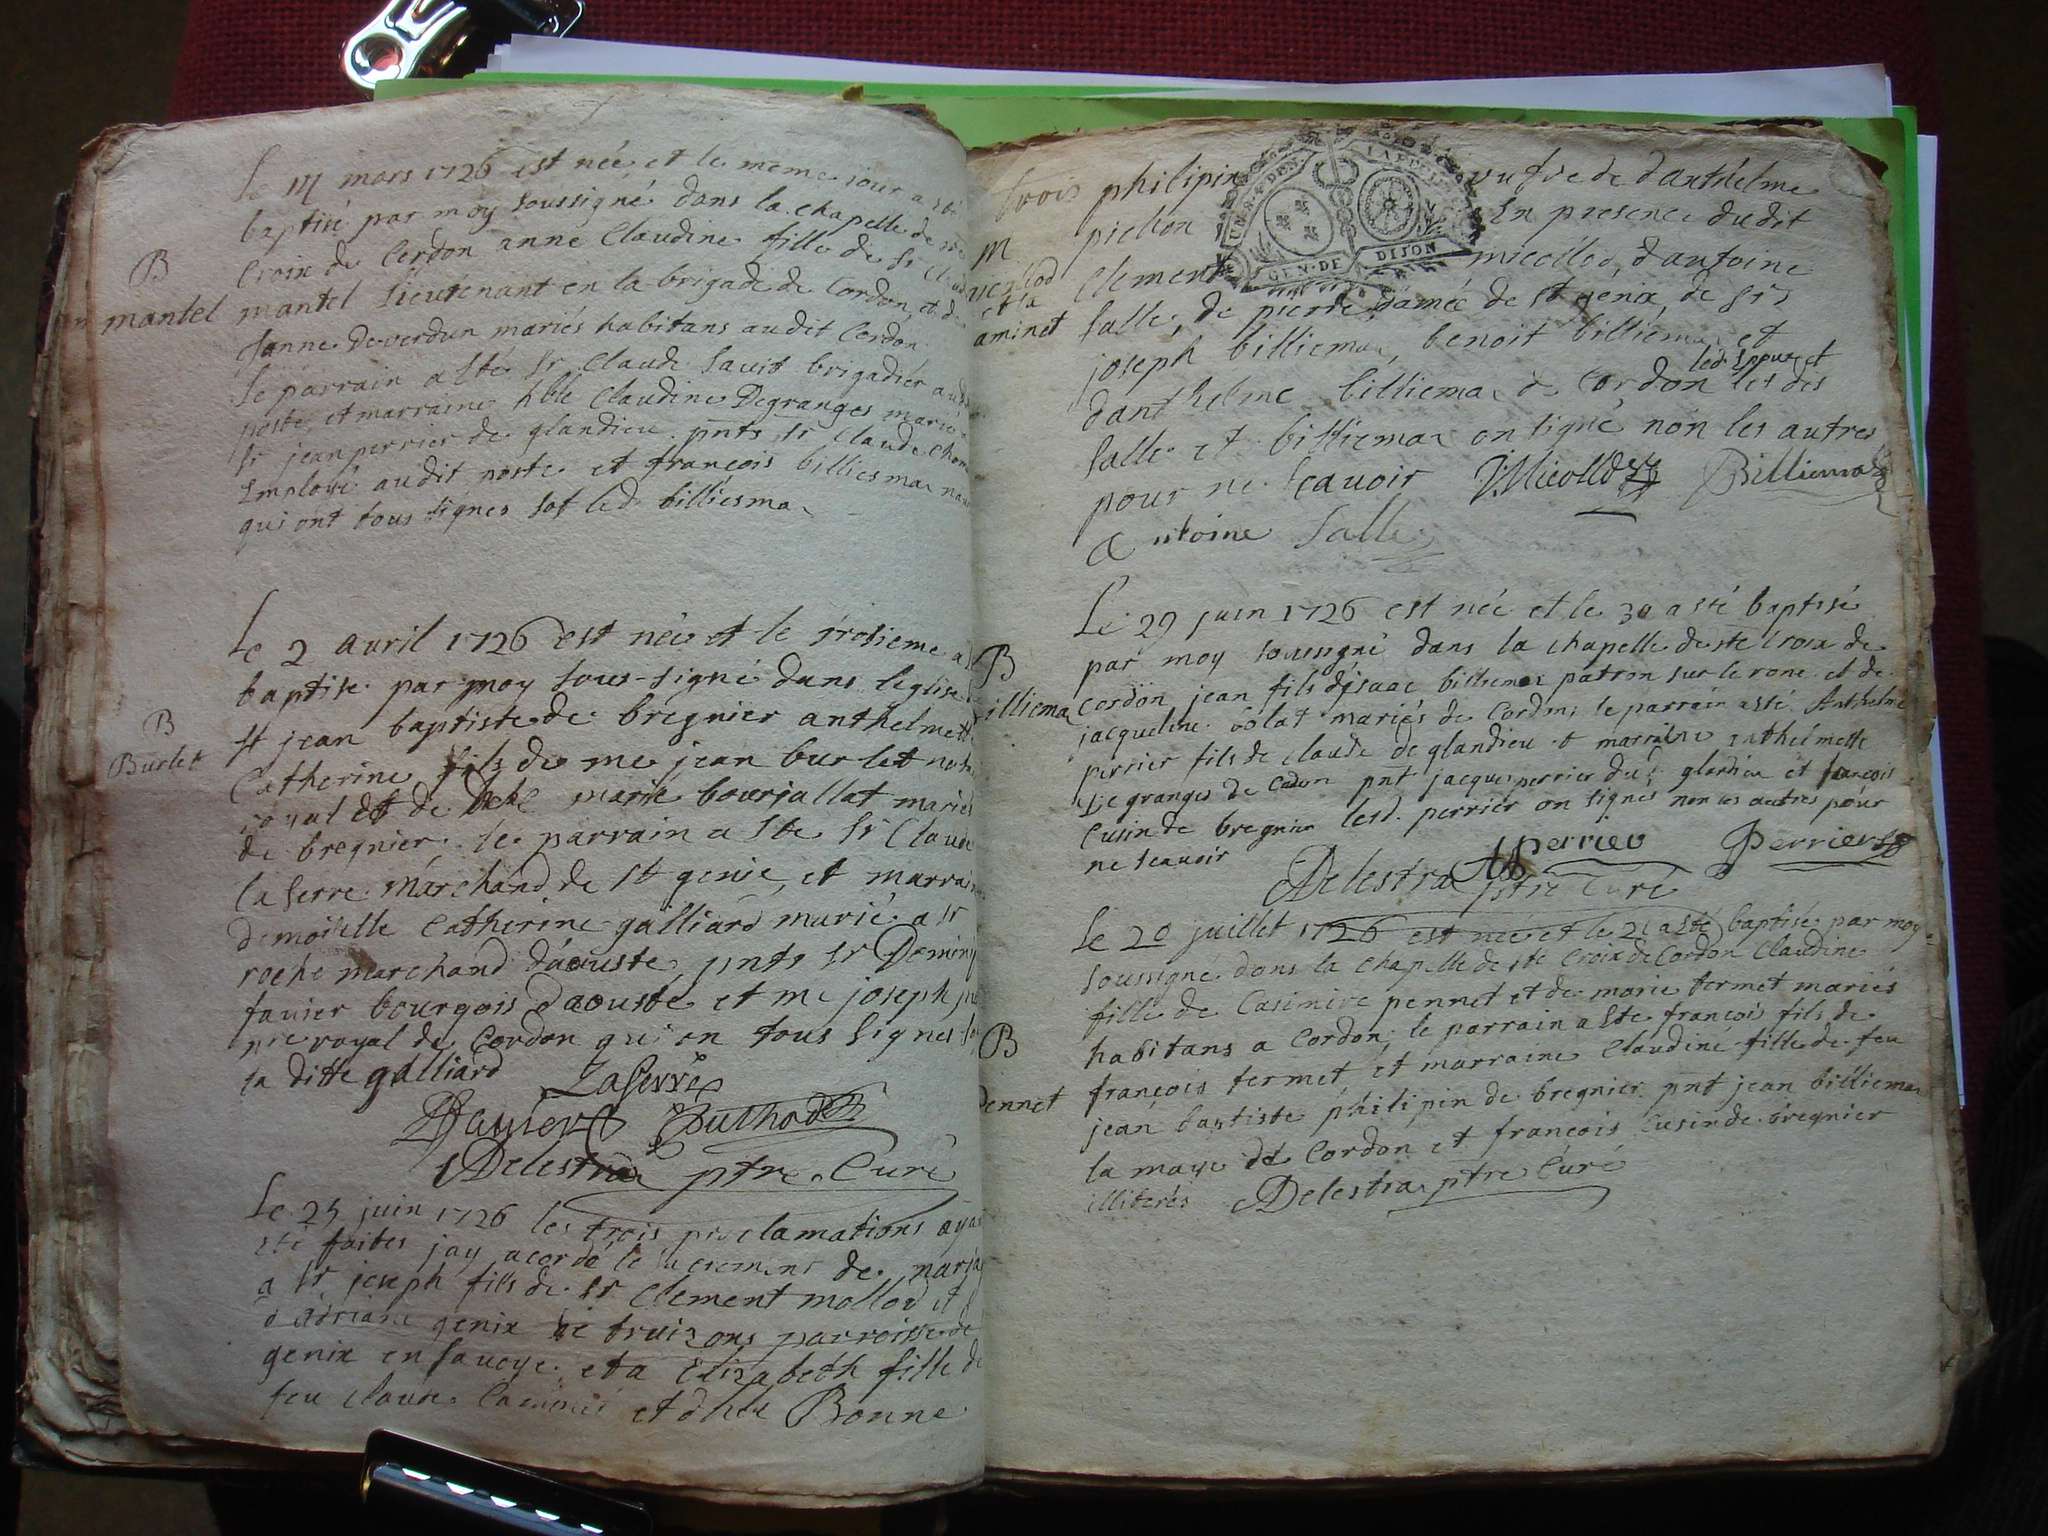 Le 14 mars 1726 est née et le meme jour a été
baptisé par moy soussigné dans la chapelle de ste
B
Croix de Cordon anne Claudine fille de sr
mantel
mantel Lieutenant en la brigade de Cordon, et de
Janne Deverdun mariés habitans audit Cordon
le parrain a sté sr Claude brigadier
poste, et marraine hble Claudine Degranges marié
sr jean perrier de glandieu pnts sr Claude
Employé audit poste et françois billiesmaz
qui ont tous signés sof led billiesmaz
Le 2 avril 1726 est née et le troisieme
baptise par moy sous-signé dans leglise
B
Burlet
st jean baptiste de bregnier anthelmette
Catherine fils de me jean burlet
royal et de marie bourjallat mariés
de bregnier. le parrain a sté sr Claude
laserre marchand de st genix, et marraine
demoiselle Catherine galliard marié a sr
roche marchand d'aouste, pnts sr
favier bourgois daouste et me joseph
nre royal de Cordon qui on tous signés
la ditte galliard Laserre
Favier
Delestra ptre Curé
Le 25 juin 1726 les trois proclamations ayant
sté faites jay acordé le sacrement de
a sr joseph fils de sr Clement mollod et
d'adriane genix de truizons parroisse de
genix en savoye et a Elizabeth fille de
feu claude et d' Bonne
trois philipin vufve de danthelme
M
pichon En presence dudit
et a
Clement micollod, dantoine
aminet
salle, de pierre damée de st genix, de srs
joseph billiemaz, benoit billiemaz et
led. Epoux et
danthelme billiemaz de Cordon les dts
salle et billiemaz on signé non les autres
pour ne scavoir Micollod Billiemaz
antoine Salle
GEN. DE DIJON
Le 29 juin 1726 est née et le 30 a sté baptisé
B
par moy soussigné dans la chapelle de ste Croix de
illiemaz
cordon jean fils d'jsaac billiemaz patron sur le rone et de
jacqueline volat mariés de Cordon; le parrain a sté Anthelme
perrier fils de claude de glandieu et marraine anthelmette
Degranges de Cordon pnt jacques perrier dud glandieu et françois
Cusin de bregnier lesd. perrier on signés non les autres pour
ne scavoir Perrier Perrier
Delestra ptre Curé
Le 20 juillet 1726 est née et le 21 a sté baptisée par moy
soussigné dans la chapelle de ste Croix de Cordon Claudine
fille de Casimire pennet et de marie fermet mariés
B
habitans a Cordon; le parrain a sté françois fils de
pennet
françois fermet, et marraine Claudine fille de feu
jean baptiste philipin de bregnier. pnt jean billiemaz
la maye de Cordon et françois Cusin de bregnier
illiterés Delestra ptre Curé